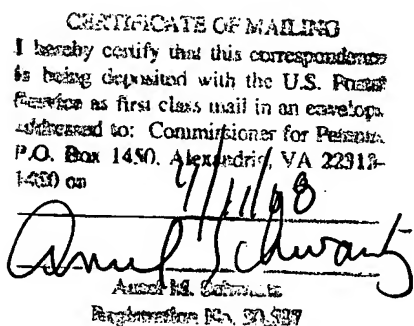 CERTIFICATE OF MAILING
I hereby certify that this correspondence
is being deposited with the U.S. Postal
Service as first class mail in an envelope
addressed to: Commissioner for Patents,
P.O. Box 1450, Alexandria, VA 22313-
1450 on
/11/08
Ansel M. Schwartz
Registration No. 30,587